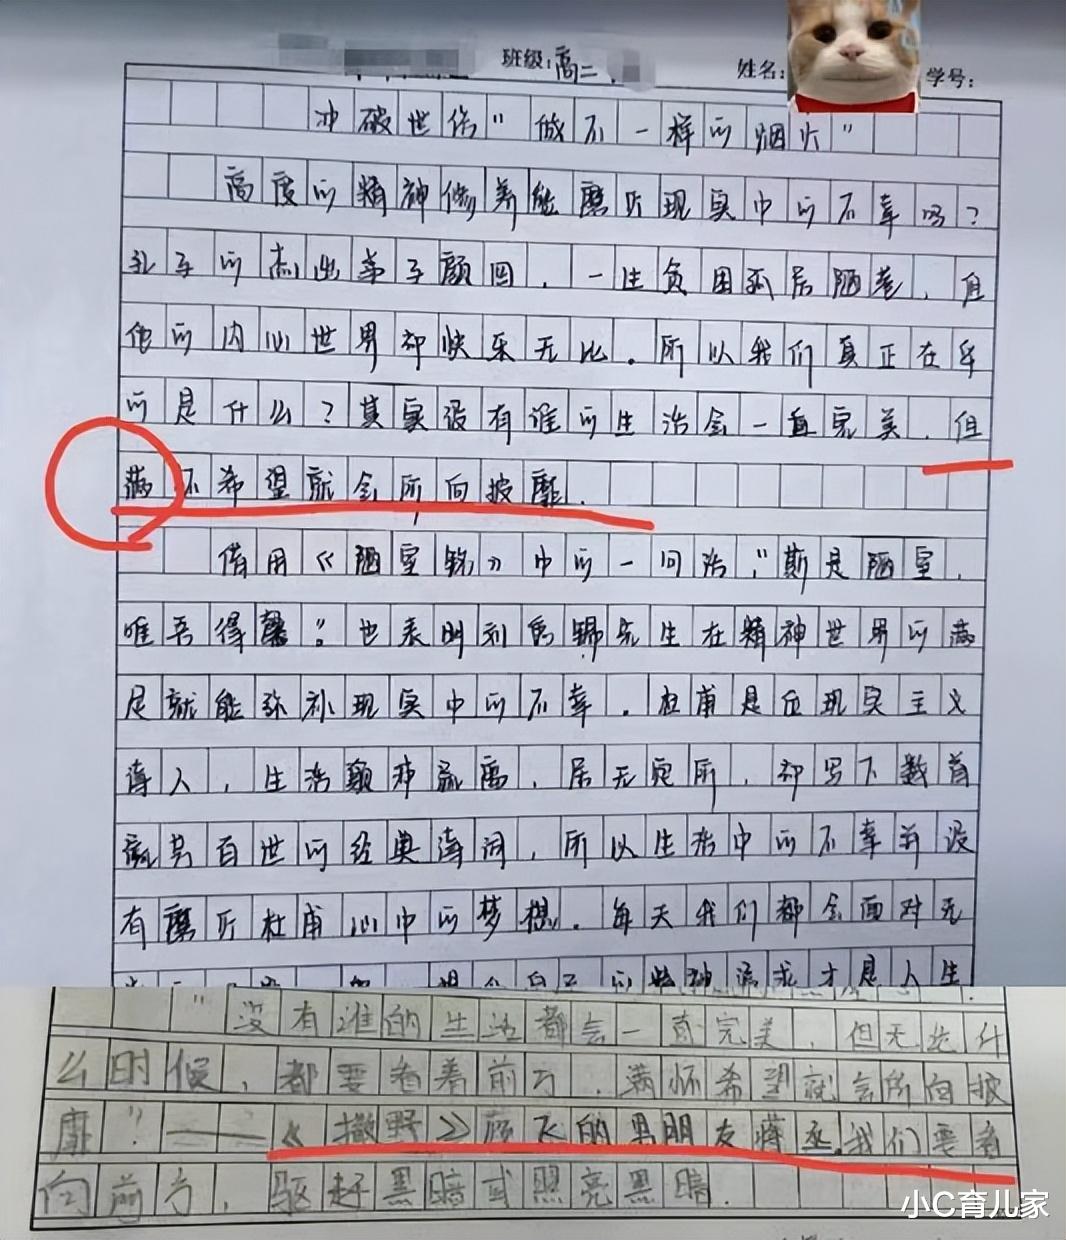 班级:高二
姓名: 学号:
冲破世俗"做不一样的烟火"
高度的精神修养能磨斤现实中的不幸吗?
孔子的杰出弟子颜回，一生贫困居陋巷，但
他的内心世界却快乐无比。所以我们真正在乎
的是什么？其实没有谁的生活会一直完美，但
满怀希望就会所向披靡.
借用《陋室铭》中的一句话，"斯是陋室，
唯吾得馨"。也表明刘禹锡先生在精神世界的满
足就能弥补现实中的不幸。杜甫是位现实主义
诗人，生活颠沛流离，居无定所，却写下数首
流芳百世的经典诗词，所以生活中的不幸并没
有磨斤杜甫心中的梦想。每天我们都会面对无
精神追求才是人生
"没有谁的生活都会一直完美，但无论什
么时候，都要看着前方，满怀希望就会所向披
靡"——《撒野》顾飞的男朋友蒋丞.我们要看
向前方，驱赶黑暗或照亮黑暗.
小C育儿家